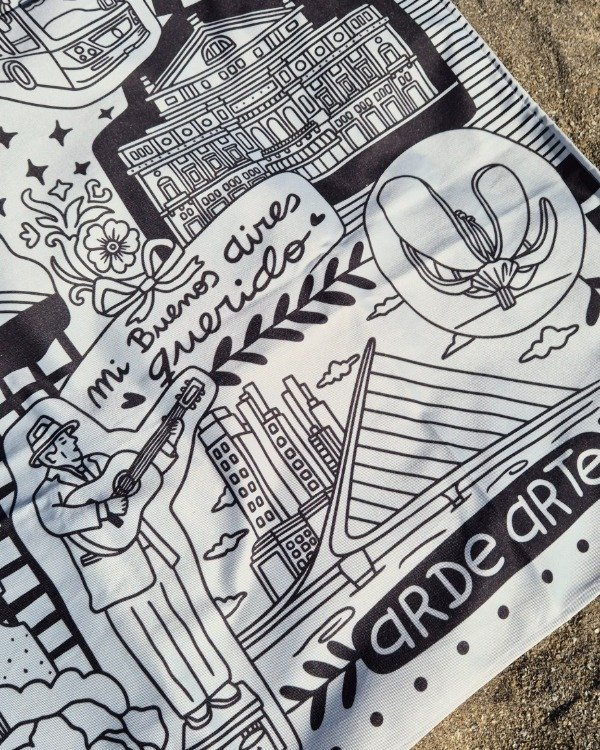 Mi Buenos Aires
querido.
ARDE ARTE